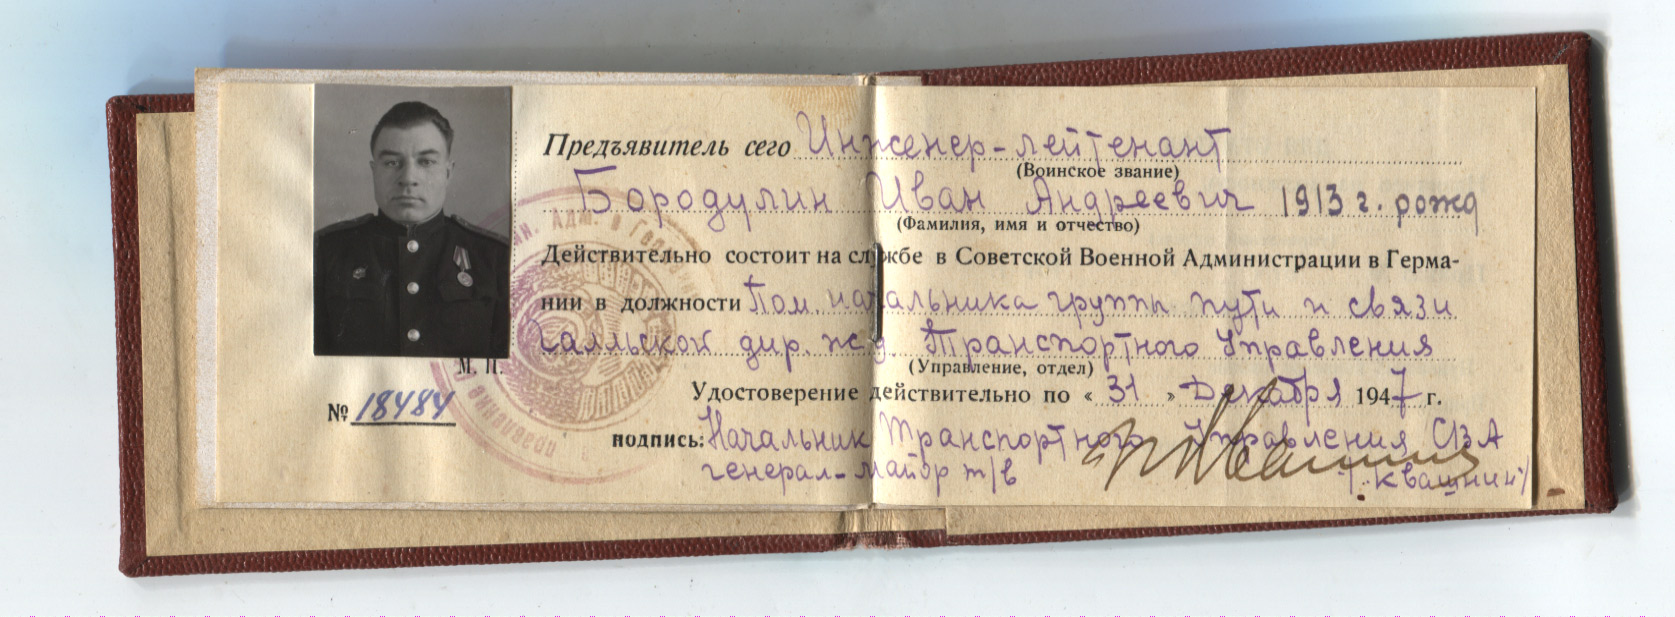 Предъявитель сего Инженер-лейтенант
(Воинское звание)
Бородулин Иван Андреевич 1913 г. рожд
(Фамилия, имя и отчество)
Действительно состоит на службе в Советской Военной Администрации в Герма-
нии в должности Пом. начальника группы пути и связи
Галльской дир. ж.д. Транспортного Управления
(Управление, отдел)
М. П.
Удостоверение действительно по « 31 » Декабря 1947 г.
№ 18484
подпись: Начальник Транспортного Управления СВА
генерал-майор т/в
/Квашнин/